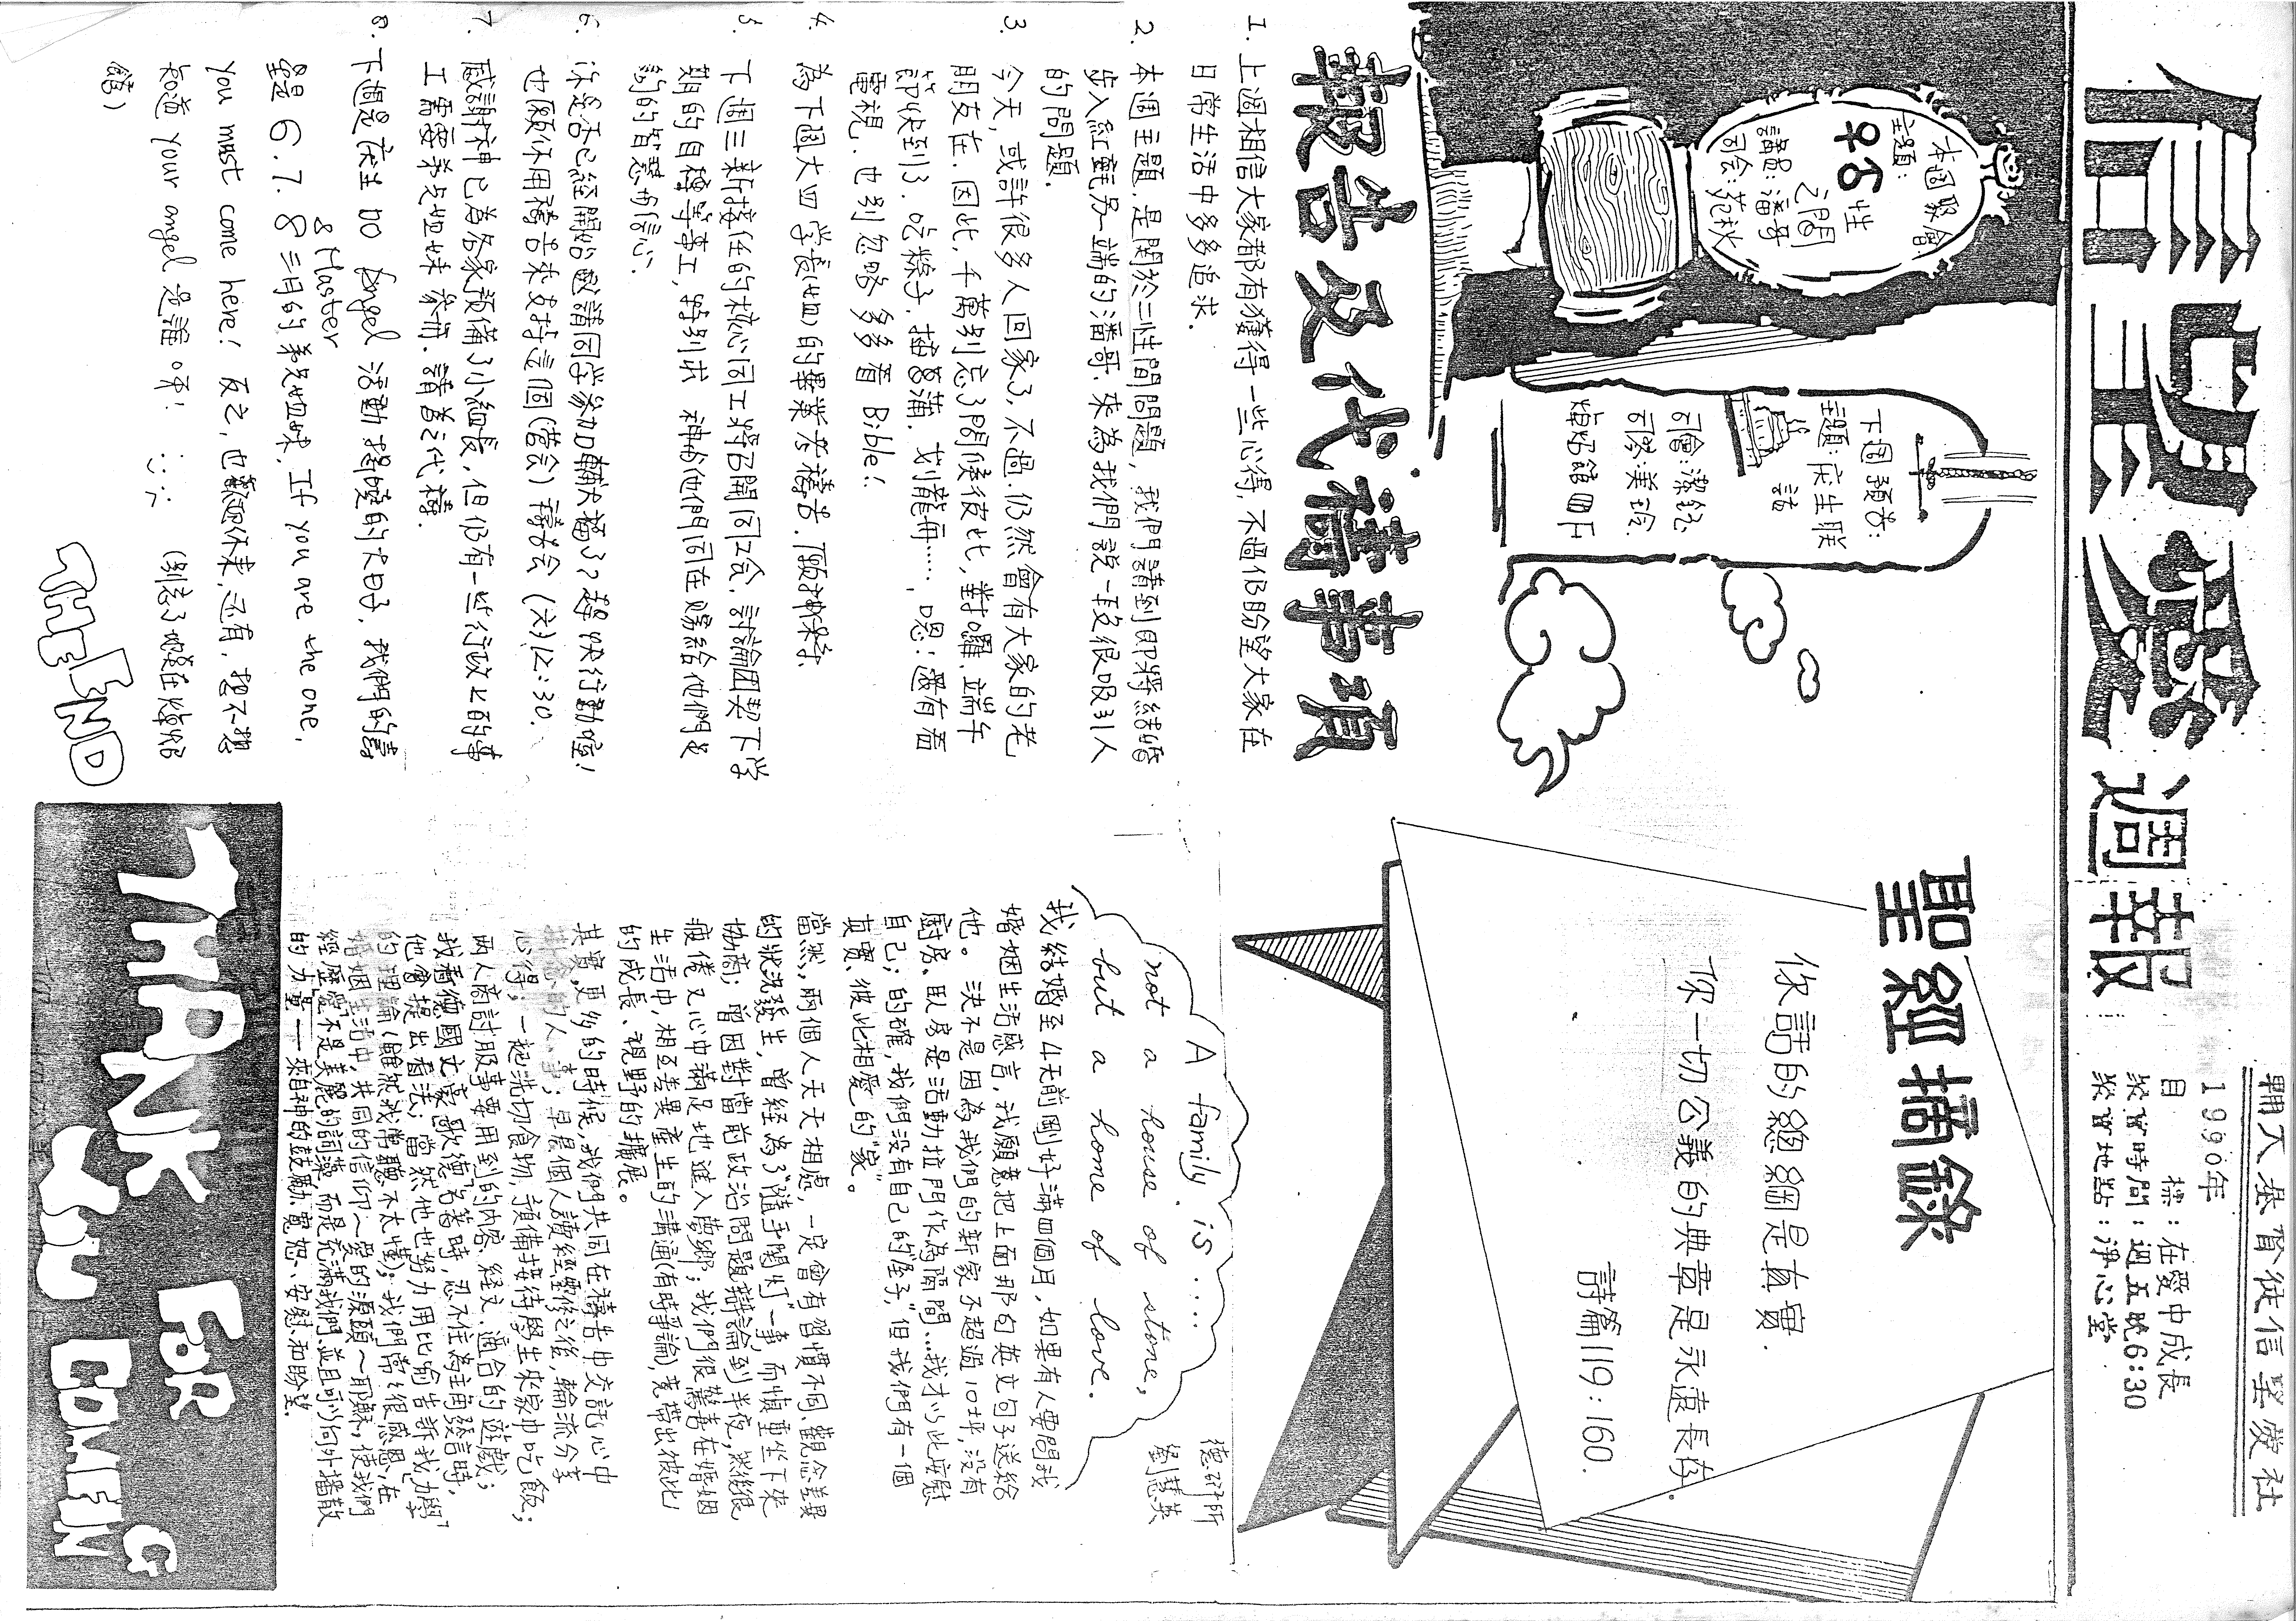 信望愛週報
輔大基督徒信望愛社
1990年
目 標:在愛中成長
聚會時間:週五晚6:30
聚會地點:淨心堂
本週聚會
主題:
♀♂性
之間
講員:潘哥
司會:苑秋
下週預告:
主題:庆生联
誼
司會:潔鈺
司琴:美琼
焢好館四F
報告及代禱事項
1. 上週相信大家都有獲得一些心得,不過仍盼望大家在
日常生活中多多追求.
2. 本週主題,是関於二性間問題,我們請到即將結婚
步入紅氈另一端的潘哥,來為我們說一段很吸引人
的問題.
3. 今天,或許很多人回家了,不過.仍然會有大家的老
朋友在.因此,千萬別忘了問候彼此,對囉.端午
節快到了.吃粽子.插菖蒲.划龍舟……,嗯:還有看
電視.也別忽略多多看 Bible!
4. 為下週大四學長(姐)的畢業考禱告.願神保守.
5. 下週三新接任的核心同工將召開同工会,討論團契下学
期的目標等事工,特別求 神給他們同在賜給他們足
夠的智慧有信心.
6. 你是否已經開始邀請同学參加輔大福了?趕快行動喔!
也願你用禱告來支持這個(營会) 禱告会(六)12:30.
7. 感謝神已為各家預備了小組長,但仍有一些行政上的事
工需要弟兄姐妹參與.請為之代禱.
8. 下週是庆生 no Angel 活動揭曉的大日子.我們的壽
& Master
星是 6.7.8 三月的弟兄姐妹,If you are the one,
you must come here! 反之,也歡迎你来,还有,想不想
知道 your angel 是誰呀! (別忘了地莫在焢好
館)
THE END
聖經摘錄
你話的總綱是真實.
你一切公義的典章是永遠長存.
詩篇119:160.
德研所
劉慧英
A family is ....
not a house of stone,
but a home of love.
我結婚至4天前剛好滿四個月,如果有人要問我
婚姻生活感言,我願意把上面那句英文句子送給
他。決不是因為我們的新家不超過10坪,沒有
廚房、臥房是活動拉門作為隔間…我才以此安慰
自己;的確,我們沒有自己的"房子",但我們有一個
真實、彼此相愛的"家"。
當然,兩個人天天相處,一定會有習慣不同、觀念差異
的狀況發生,曾經為了"隨手関灯"一事,而慎重坐下來
協商;曾因對當前政治問題辯論到半夜,然後很
疲倦又心中滿足地進入夢鄉;我們很驚喜在婚姻
生活中,相互差異產生的溝通(有時爭論),竟帶出彼此
的成長、視野的擴展。
其實,更多的時候,我們共同在禱告中交託心中
掛念的人、事;早晨個人讀經靈修之後,輪流分享
心得;一起洗切食物,預備接待學生來家中吃飯;
兩人商討服事要用到的內容、經文、適合的遊戲;
我看德國文豪"歌德"名著時,忍不住為主角發言時,
他會提出看法;當然他也努力用比喻告訴我"力學"
的理論(雖然我常聽不太懂);我們常常很感恩,在
婚姻生活中,共同的信仰~愛的源頭~耶穌,使我們
經歷"愛"不是美麗的詞藻,而是充滿我們並且可以向外播散
的力量——來自神的鼓勵、寬恕、安慰和盼望.
THANK YOU FOR COMING